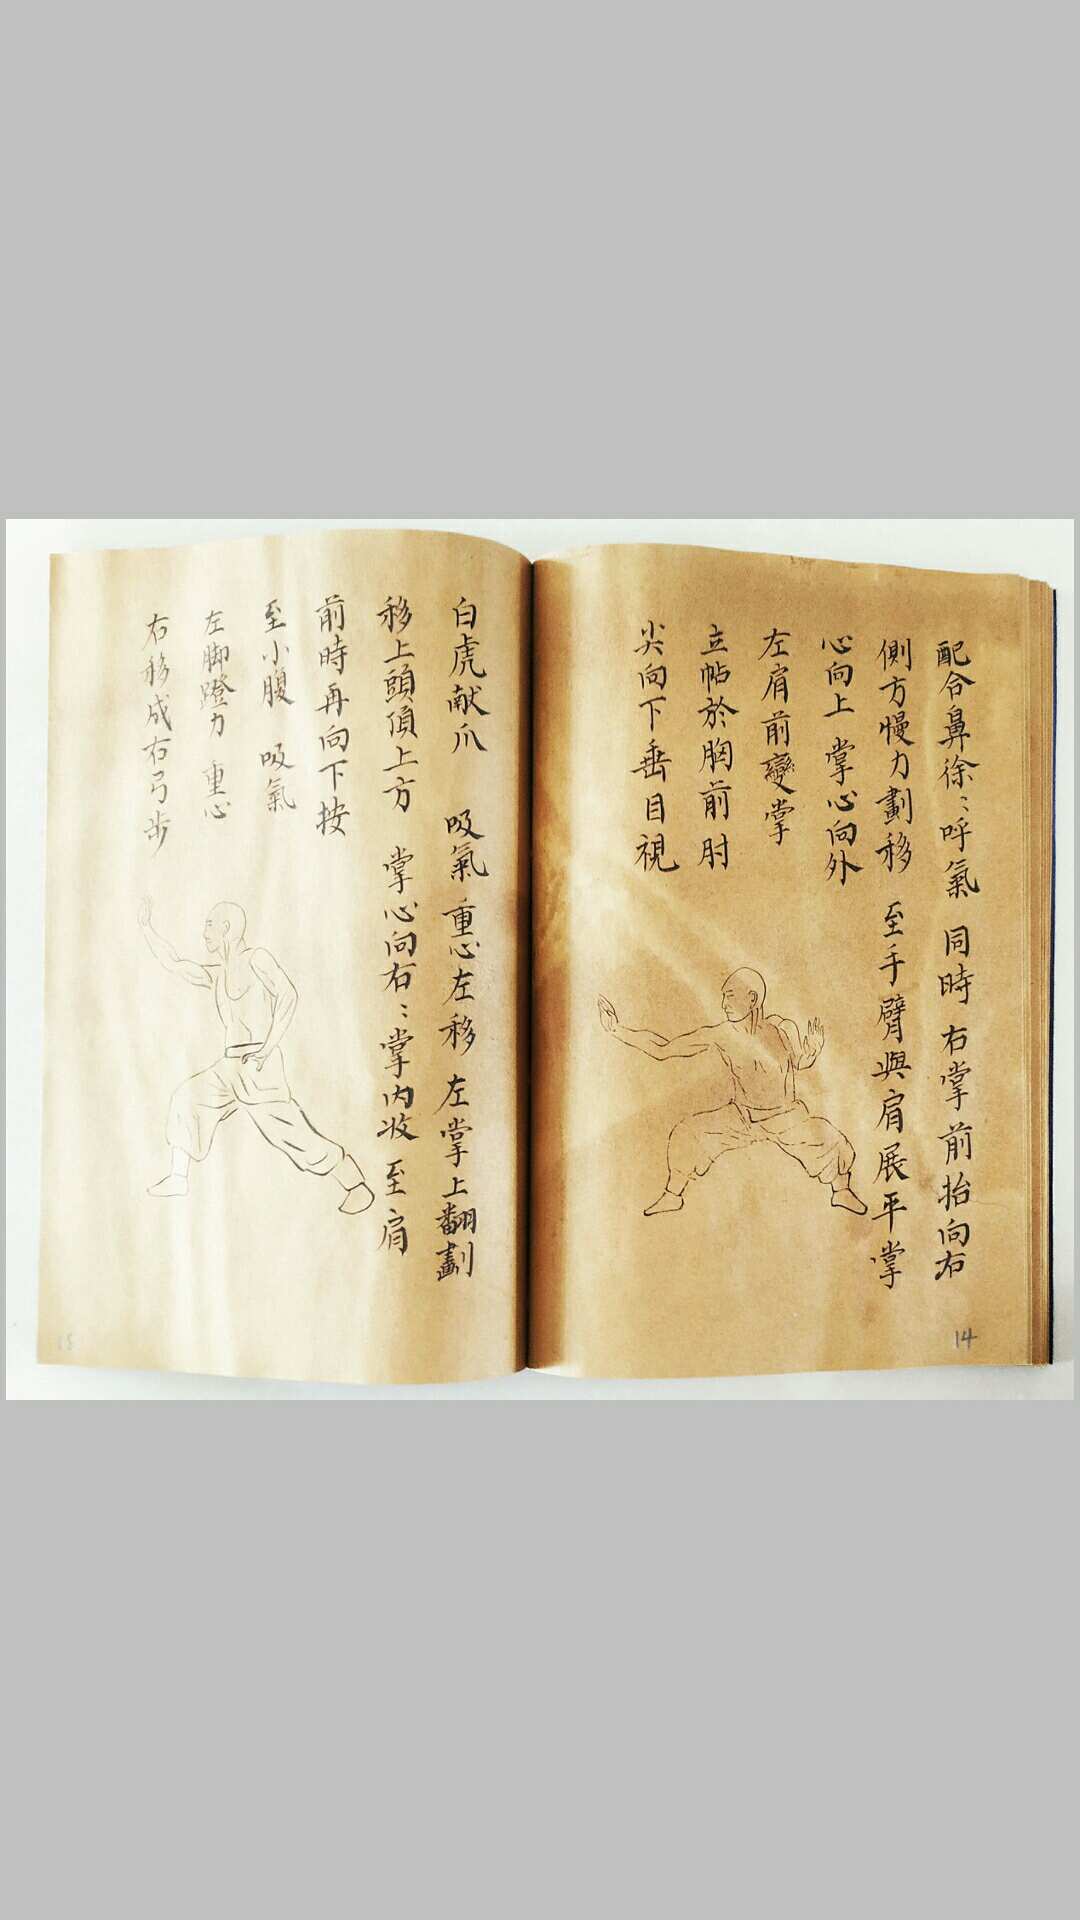 配合鼻徐〻呼氣 同時 右掌前抬向右
側方慢力劃移 至手臂與肩展平掌
心向上 掌心向外
左肩前變掌
立帖於胸前肘
尖向下垂目視
14
白虎献爪 吸氣重心左移 左掌上翻劃
移上頭頂上方 掌心向右〻掌内收至肩
前時再向下按
至小腹 吸氣
左脚蹬力 重心
右移成右弓步
15